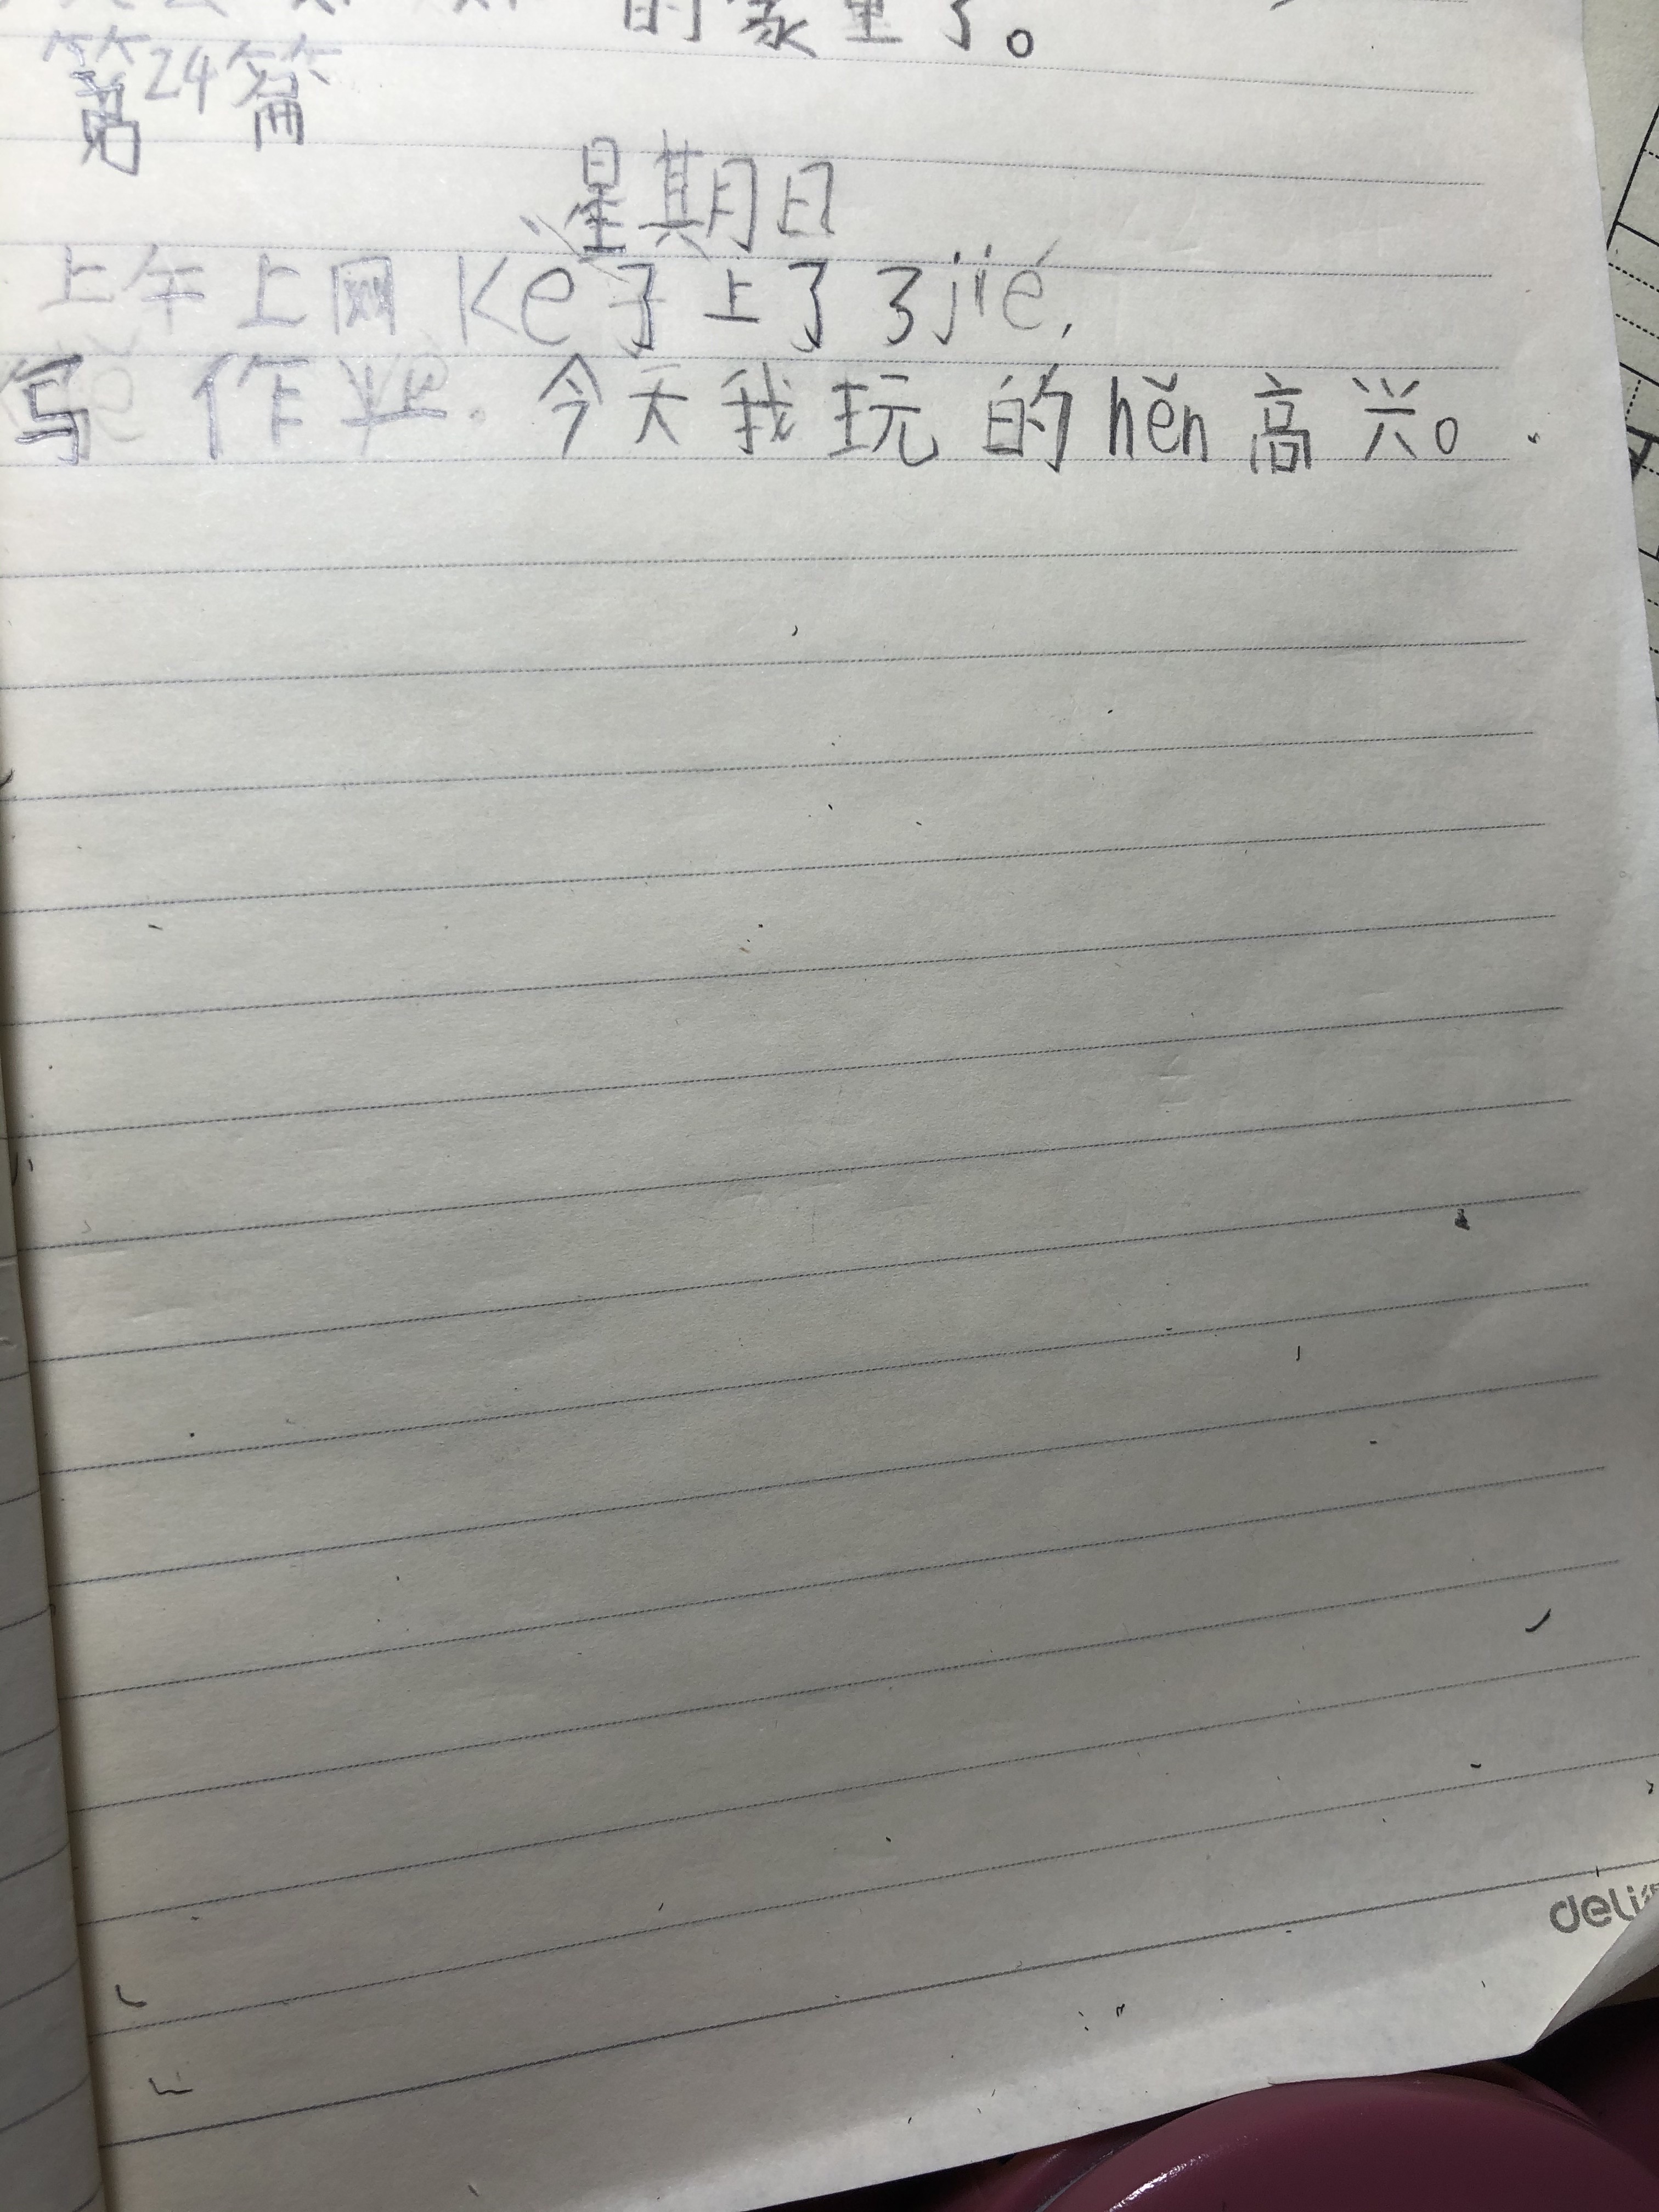 的家里了。
第24篇
星期日
上午上网Ke了上了3jié,
写作业。今天我玩的hěn高兴。
deli